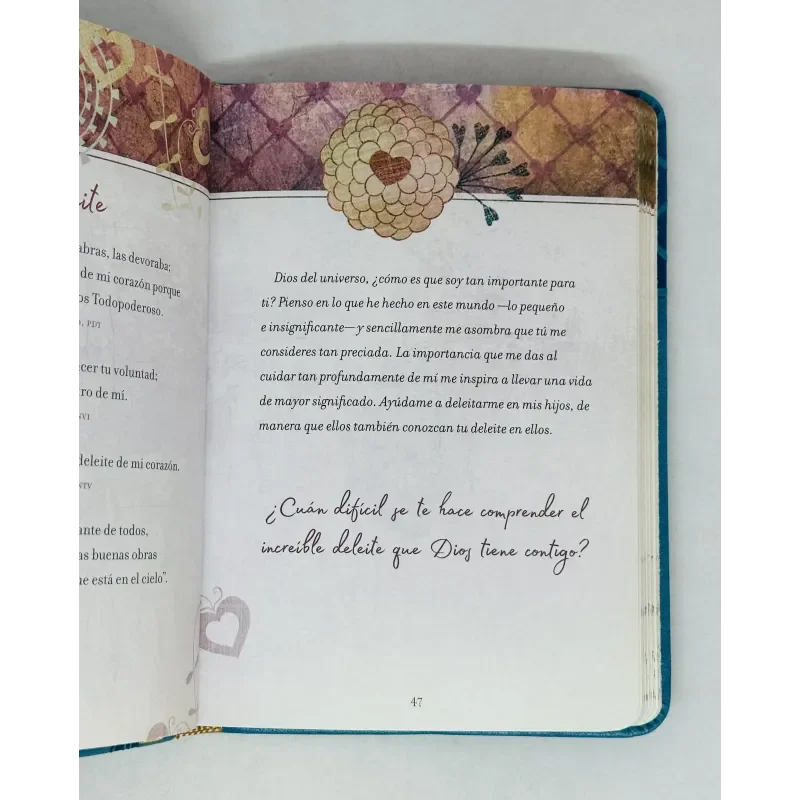 abras, las devoraba;
de mi corazón porque
os Todopoderoso.
PDT
cer tu voluntad;
ro de mí.
NVI
deleite de mi corazón.
NTV
ante de todos,
as buenas obras
ue está en el cielo”.
Dios del universo, ¿cómo es que soy tan importante para
ti? Pienso en lo que he hecho en este mundo —lo pequeño
e insignificante— y sencillamente me asombra que tú me
consideres tan preciada. La importancia que me das al
cuidar tan profundamente de mí me inspira a llevar una vida
de mayor significado. Ayúdame a deleitarme en mis hijos, de
manera que ellos también conozcan tu deleite en ellos.
¿Cuán difícil se te hace comprender el
increíble deleite que Dios tiene contigo?
47